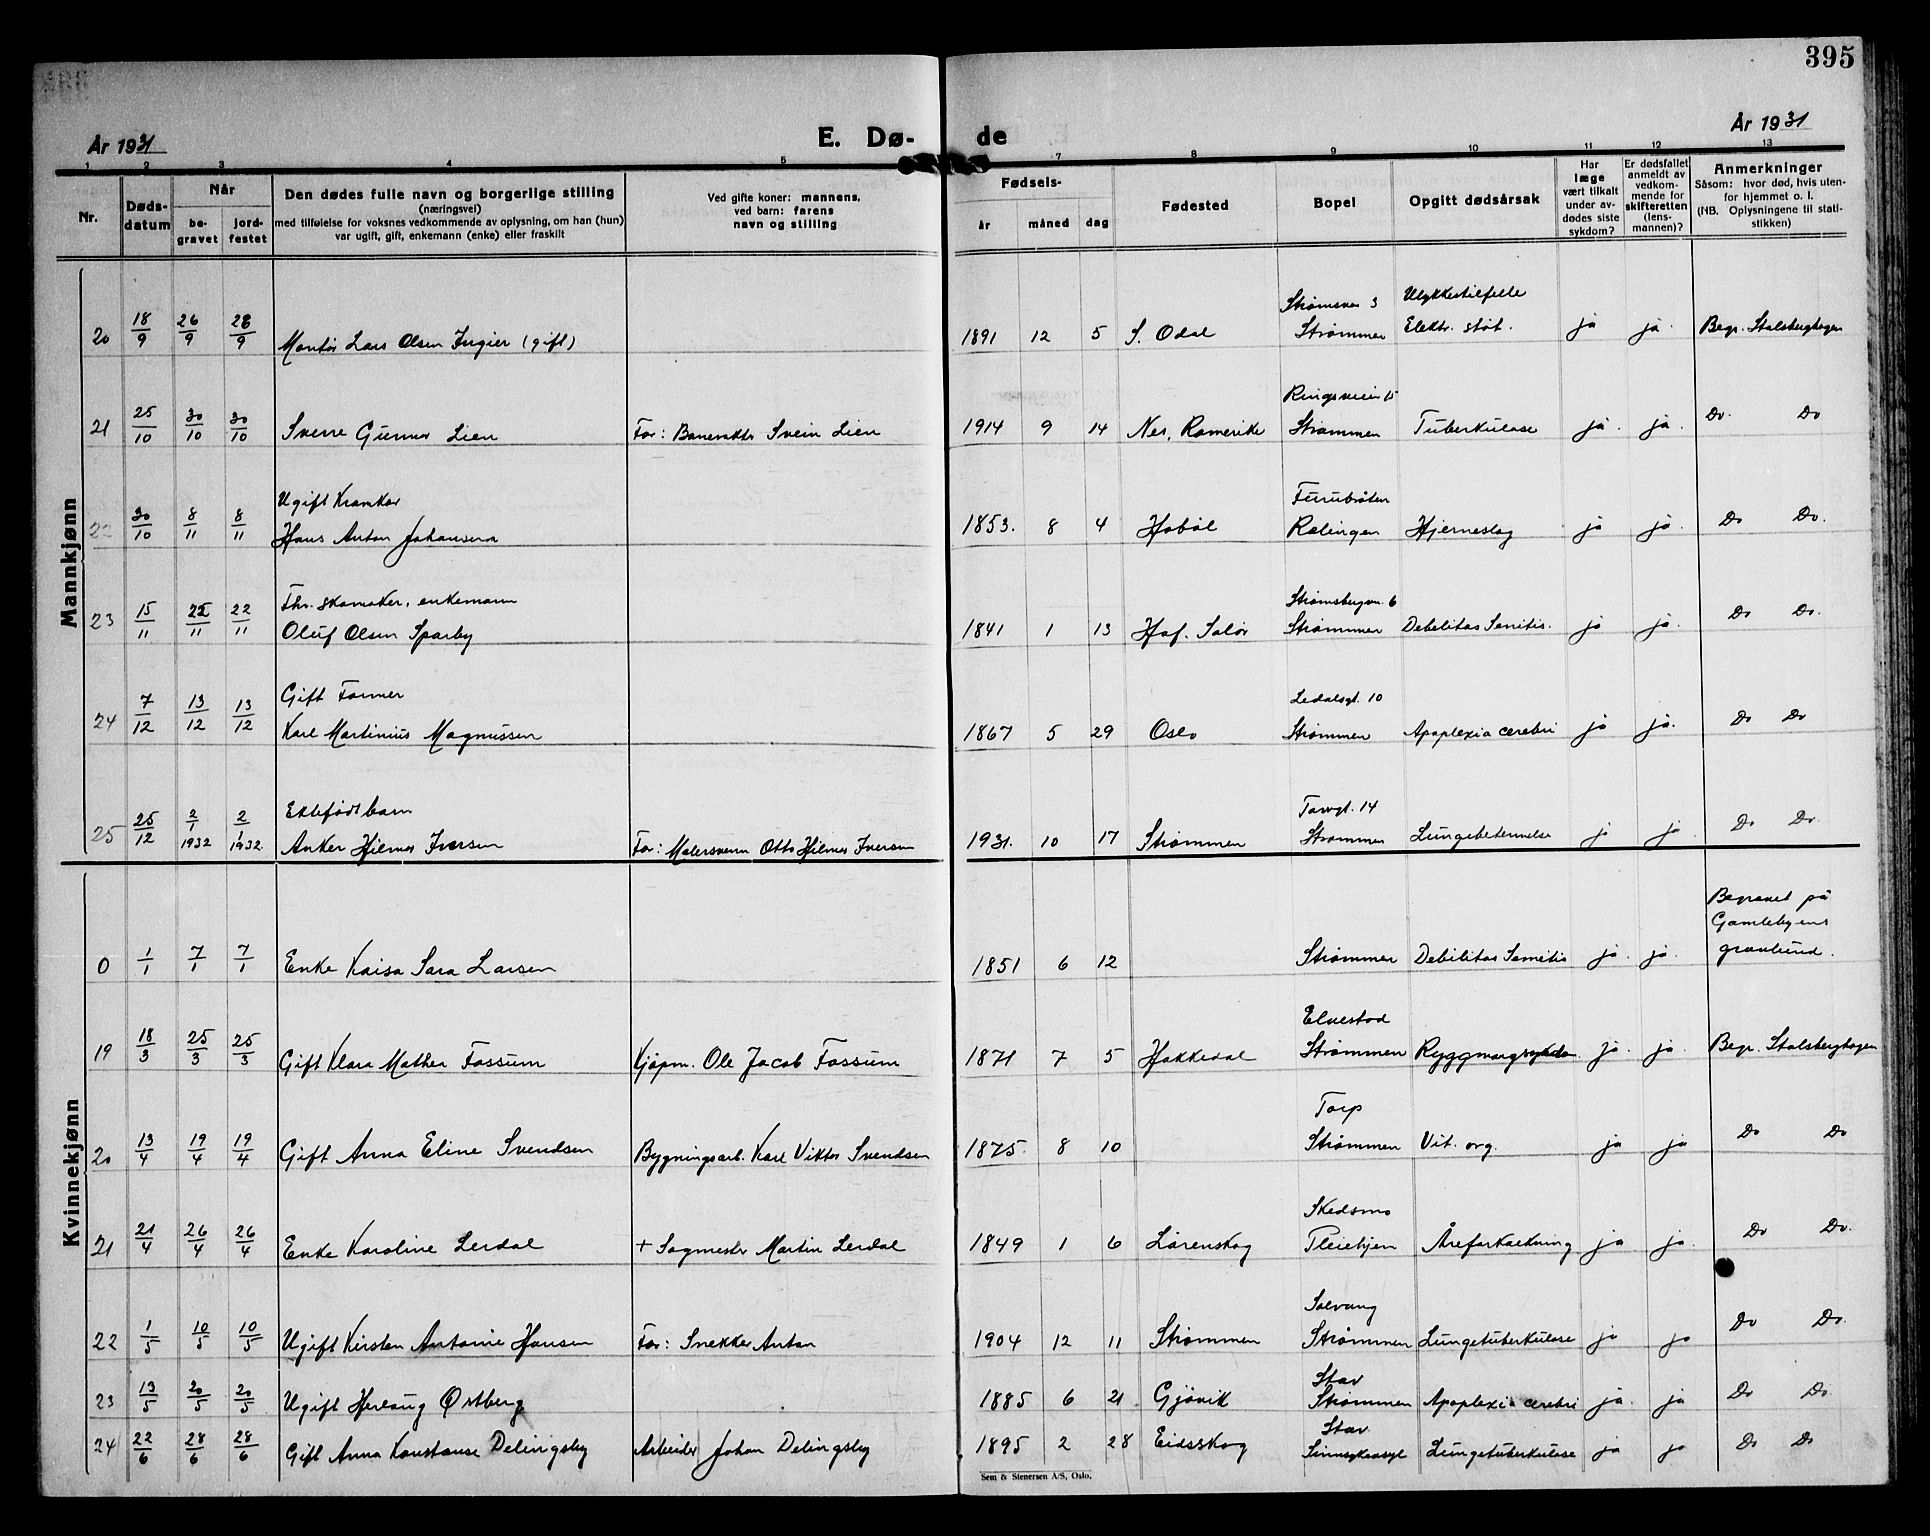 395
År 1931
E. Dø-
de
År 1931
1 2 3 4 5 7 8 9 10 11 12 13
Nr.
Døds-
datum
Når
be-
gravet
jord-
festet
Den dødes fulle navn og borgerlige stilling
(næringsvei)
med tilføielse for voksnes vedkommende av oplysning, om han (hun)
var ugift, gift, enkemann (enke) eller fraskilt
Ved gifte koner: mannens,
ved barn: farens
navn og stilling
Fødsels-
år måned dag
Fødested
Bopel
Opgitt dødsårsak
Har
læge
vært tilkalt
under av-
dødes siste
sykdom?
Er dødsfallet
anmeldt av
vedkom-
mende for
skifteretten
(lens-
mannen)?
Anmerkninger
Såsom: hvor død, hvis uten-
for hjemmet o. l.
(NB. Oplysningene til stati-
stikken)
Mannkjønn
Strømsvn 3 Ulykkestilfelle
20 18/9 26/9 26/9 Montør Lars Olsen Ingier (gift) 1891 12 5 S. Odal Strømmen Elektr. støt. ja ja. Begr. Stalsberghagen
Ringsveien 15
21 25/10 30/10 30/10 Sverre Gunnar Lien Far: Banevakter Svein Lien 1914 9 14 Nes, Romerike Strømmen Tuberkulose ja. ja. Do. Do
Ugift Furubråten
22 30/10 8/11 8/11 Hans Anton Johansen 1853. 8 4 Hobøl Rælingen Hjerneslag ja ja. Do Do.
Fhv. skomaker, enkemann Strømsbergvn. 6
23 15/11 22/11 22/11 Oluf Olsen Sparby 1841 1 13 Hof. Solør Strømmen Debilitas Senilis. ja ja. Do Do.
Gift Former 10
24 7/12 13/12 13/12 Karl Martinius Magnussen 1867 5 29 Oslo Strømmen Apoplexia cerebri ja ja. Do Do
Ektefødt barn Torvgt. 14
25 25/12 2/1 1932 2/1 1932. Anker Hilmar Iversen Far: Malersvenn Otto Hilmar Iversen 1931. 10 17 Strømmen Strømmen Lungebetennelse ja ja Do Do.
Kvinnekjønn
Begravet på
Gamlebyens
0 1/1 7/1 7/1 Enke Kaisa Sara Larsen 1851 6 12 Strømmen Debilitas Senilis ja. ja. gravlund.
Elvestad
19 18/3 25/3 25/3 Gift Klara Mathea Fossum Kjøpm. Ole Jacob Fossum 1871 7 5 Hakkedal Strømmen Ryggmargsykdom ja. ja. Begr. Stalsberghagen
Torp
20 13/4 19/4 19/4 Gift Anna Eline Svendsen Bygningsarb. Karl Viktor Svendsen 1875. 8 10 Strømmen Vit. org. ja ja Do Do
Skedsmo
21 21/4 26/4 26/4 Enke Karoline Lerdal + Sagmester Martin Lerdal 1849 1 6 Lørenskog Pleiehjem Åreforkalkning ja ja. Do Do.
Solvang
22 1/5 10/5 10/5 Ugift Kirsten Antonie Hansen Far: Snekker Anton 1904 12 11 Strømmen Strømmen Lungetuberkulose ja ja Do Do.
Stav
23 13/5 20/5 20/5 Ugift Herlaug Østberg 1885 6 21 Gjøvik Strømmen Apoplexia cerebri ja. ja Do Do.
Stav
24 22/6 28/6 28/6 Gift Anna Konstanse Delingsby Arbeider Johan Delingsby 1895 2 28 Eidsskog Sinnsykeasyl Lungetuberkulose ja ja Do Do
Sem & Stenersen A/S, Oslo.